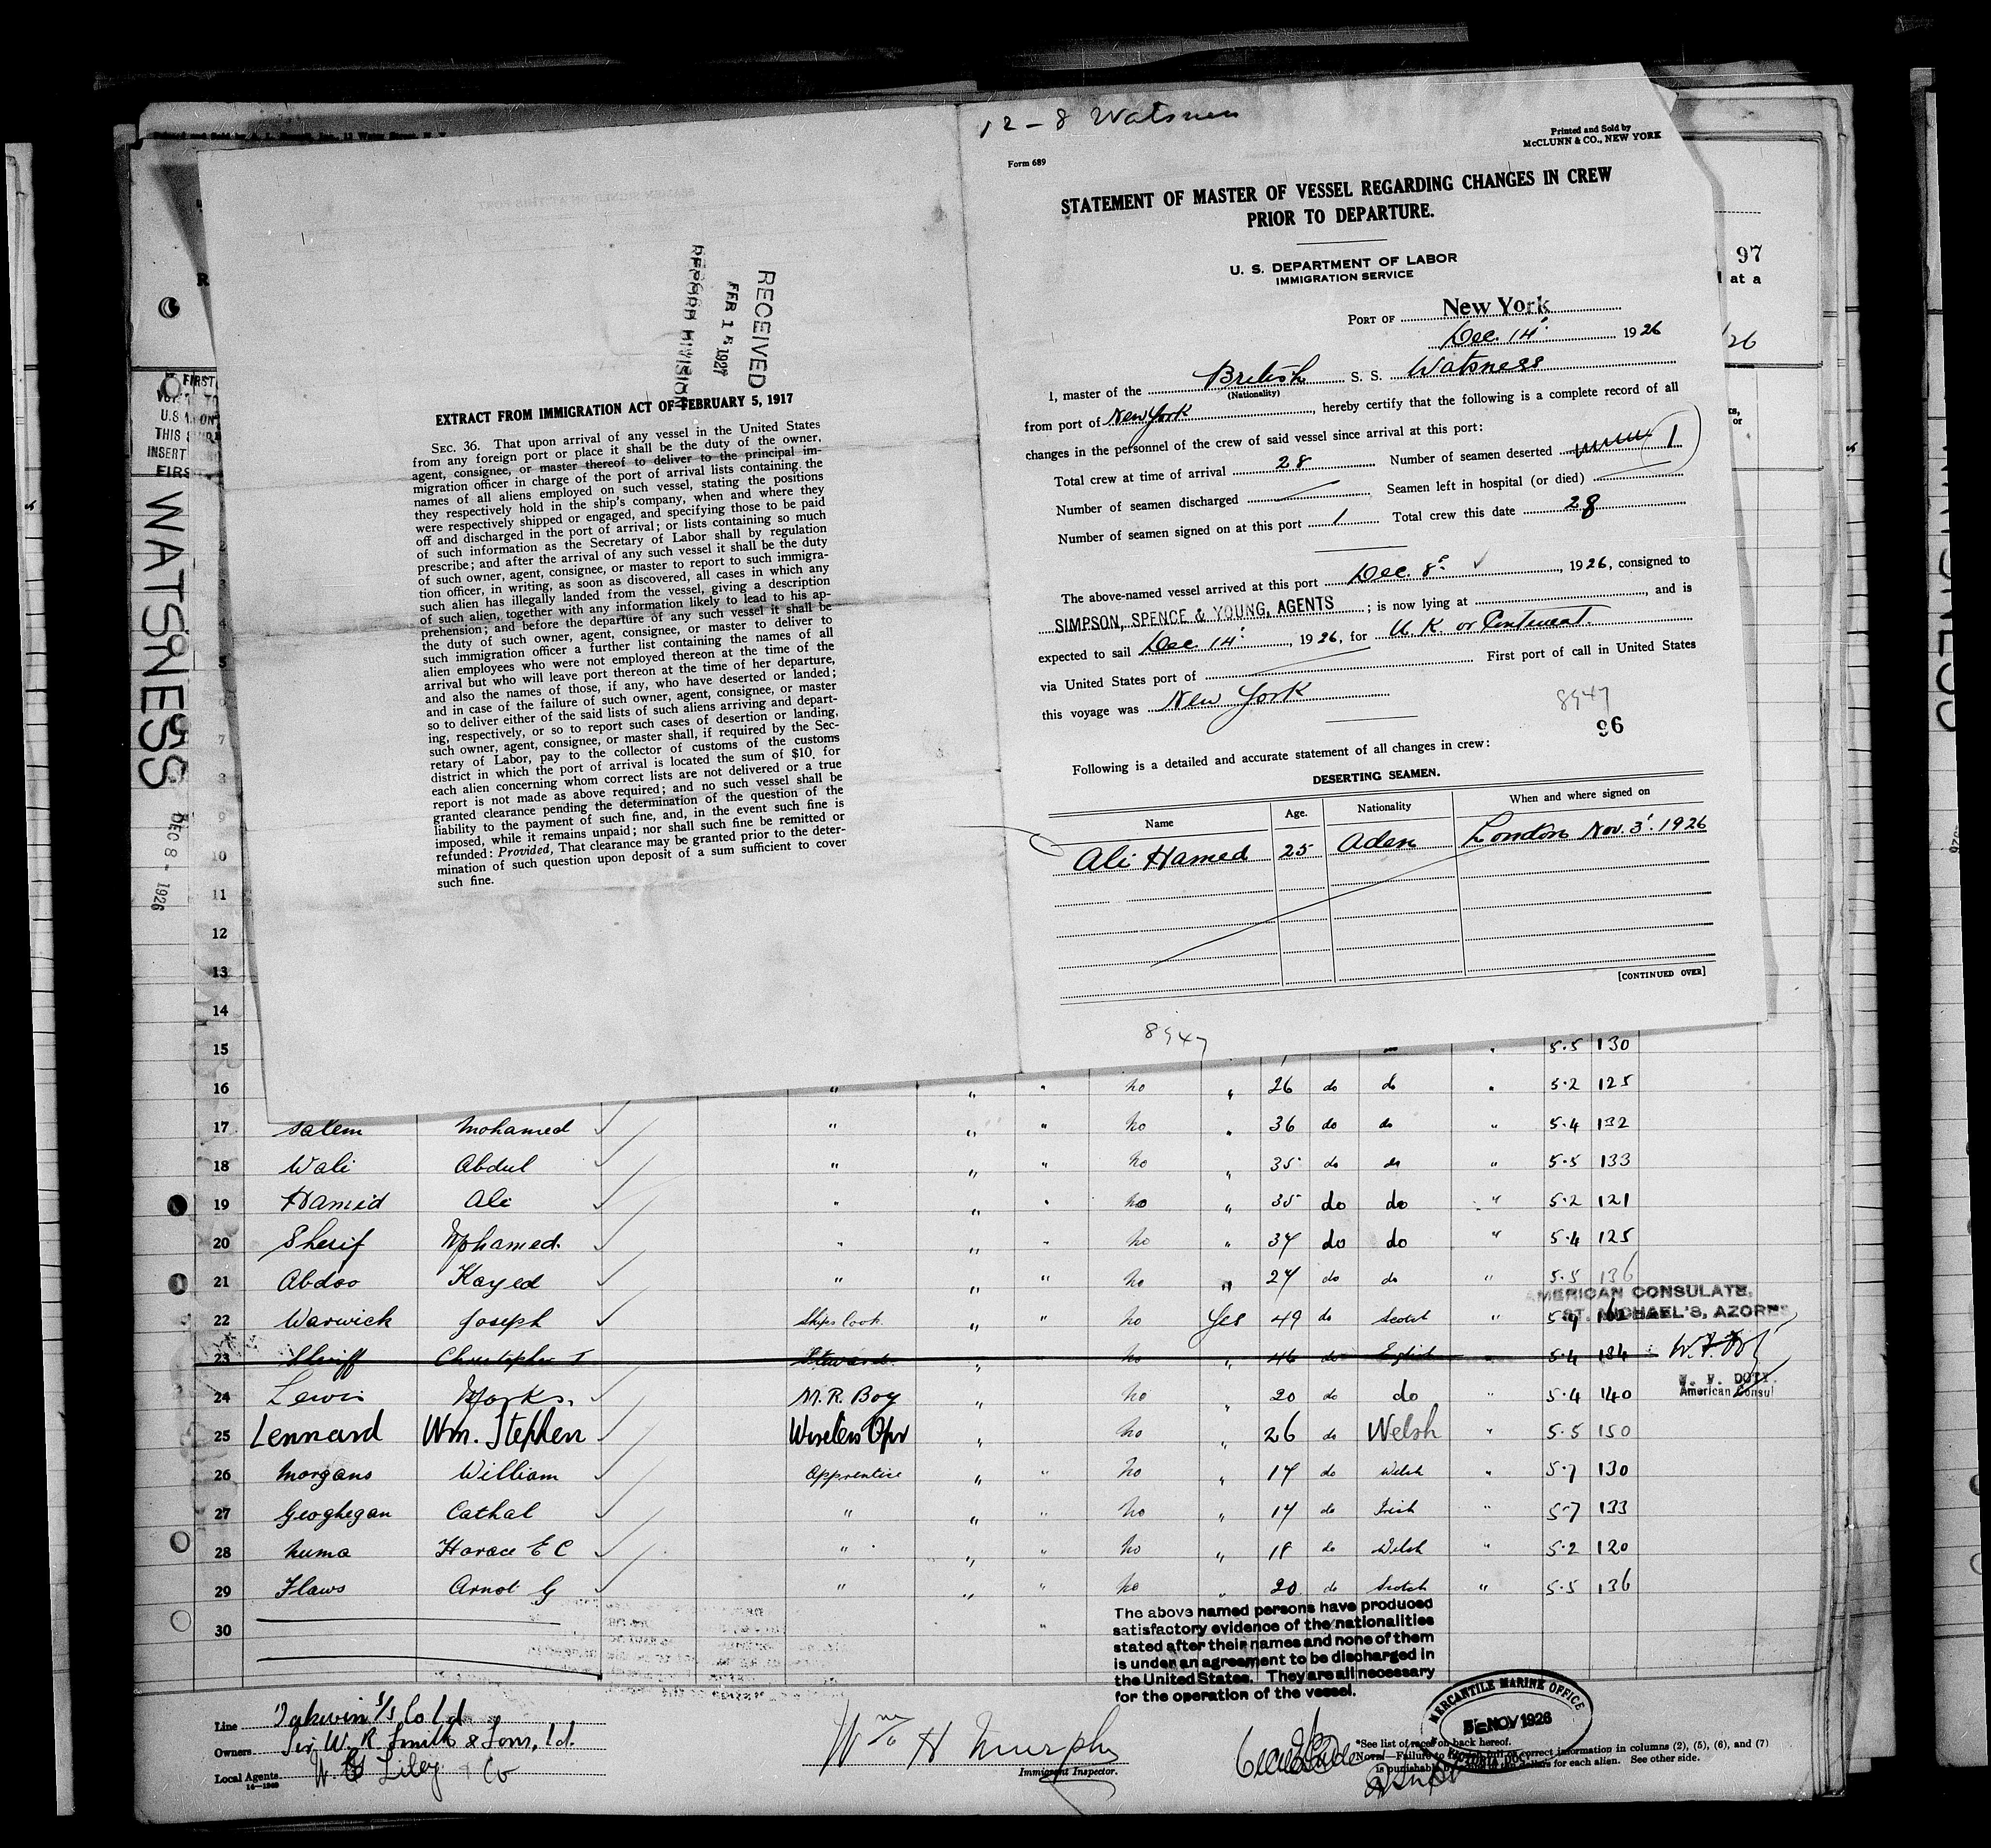 12-8 Watsness
Form 689
Printed and Sold by
McCLUNN & CO., NEW YORK
STATEMENT OF MASTER OF VESSEL REGARDING CHANGES IN CREW
PRIOR TO DEPARTURE.
U. S. DEPARTMENT OF LABOR
IMMIGRATION SERVICE
PORT OF New York
Dec. 14 1926
I, master of the British S. S. Watsness
(Nationality)
from port of New York, hereby certify that the following is a complete record of all
changes in the personnel of the crew of said vessel since arrival at this port:
Total crew at time of arrival 28 Number of seamen deserted 1
Number of seamen discharged Seamen left in hospital (or died)
Number of seamen signed on at this port 1 Total crew this date 28
The above-named vessel arrived at this port Dec. 8, 1926, consigned to
SIMPSON, SPENCE & YOUNG, AGENTS; is now lying at , and is
expected to sail Dec 14, 1926, for U. K. or Continent.
via United States port of First port of call in United States
this voyage was New York
8947
96
Following is a detailed and accurate statement of all changes in crew:
DESERTING SEAMEN.
Name Age. Nationality When and where signed on
Ali Hamed 25 Aden London Nov. 3. 1926
[CONTINUED OVER]
8947
RECEIVED
FEB 15 1927
RECORD DIVISION
EXTRACT FROM IMMIGRATION ACT OF FEBRUARY 5, 1917
SEC. 36. That upon arrival of any vessel in the United States
from any foreign port or place it shall be the duty of the owner,
agent, consignee, or master thereof to deliver to the principal im-
migration officer in charge of the port of arrival lists containing the
names of all aliens employed on such vessel, stating the positions
they respectively hold in the ship's company, when and where they
were respectively shipped or engaged, and specifying those to be paid
off and discharged in the port of arrival; or lists containing so much
of such information as the Secretary of Labor shall by regulation
prescribe; and after the arrival of any such vessel it shall be the duty
of such owner, agent, consignee, or master to report to such immigra-
tion officer, in writing, as soon as discovered, all cases in which any
such alien has illegally landed from the vessel, giving a description
of such alien, together with any information likely to lead to his ap-
prehension; and before the departure of any such vessel it shall be
the duty of such owner, agent, consignee, or master to deliver to
such immigration officer a further list containing the names of all
alien employees who were not employed thereon at the time of the
arrival but who will leave port thereon at the time of her departure,
and also the names of those, if any, who have deserted or landed;
and in case of the failure of such owner, agent, consignee, or master
so to deliver either of the said lists of such aliens arriving and depart-
ing, respectively, or so to report such cases of desertion or landing,
such owner, agent, consignee, or master shall, if required by the Sec-
retary of Labor, pay to the collector of customs of the customs
district in which the port of arrival is located the sum of $10 for
each alien concerning whom correct lists are not delivered or a true
report is not made as above required; and no such vessel shall be
granted clearance pending the determination of the question of the
liability to the payment of such fine, and, in the event such fine is
imposed, while it remains unpaid; nor shall such fine be remitted or
refunded: Provided, That clearance may be granted prior to the deter-
mination of such question upon deposit of a sum sufficient to cover
such fine.
97
WATSNESS
DEC 8 - 1926
7
8
9
10
11
12
13
14
15 5.5 130
16 " " " no " 26 do do " 5.2 125
17 Salem Mohamed " " " no " 36 do do " 5.4 132
18 Wali Abdul " " " no " 35 do do " 5.5 133
19 Hamid Ali " " " no " 35 do do " 5.2 121
20 Sherif Mohamed. " " " no " 34 do do " 5.4 125
21 Abdoo Kayed " " " no " 24 do do " 5.5 136
22 Warwick Joseph Ships Cook " " no Yes 49 do Scotch "
AMERICAN CONSULATE,
ST. MICHAEL'S, AZORES
23 Sheriff Christopher T Steward " no " 46 do English " 5.4 184
24 Lewis Marks. M. R. Boy " no " 20 do do " 5.4 140
W. F. DOTY.
American Consul
25 Lennard Wm. Stephen Wireless Opr " no " 26 do Welsh " 5.5 150
26 Morgans William Apprentice " " no " 17 do Welsh " 5.7 130
27 Geoghegan Cathal " " " no " 17 do Irish " 5.7 133
28 Numa Horace E C " " " no " 18 do Welsh " 5.2 120
29 Flaws Arnot G " " " no " 20 do Scotch " 5.5 136
30
The above named persons have produced
satisfactory evidence of the nationalities
stated after their names and none of them
is under an agreement to be discharged in
the United States. They are all necessary
for the operation of the vessel.
Line S/S Co Ld
Owners Sir W. R. Smith & Sons, Ld.
Local Agents W. Liley & Co
Wm H Murphy
Immigrant Inspector.
MERCANTILE MARINE OFFICE
5 NOV 1926
*See list of races on back hereof.
NOTE.—Failure to furnish full or correct information in columns (2), (5), (6), and (7)
is punishable by a fine of ten dollars for each alien. See other side.